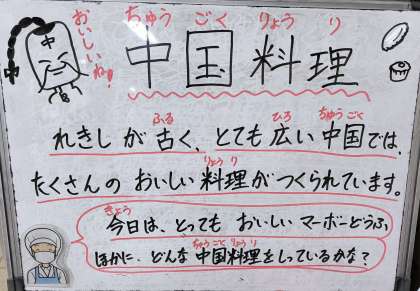 おいしいね!
中
中
ちゅう ごく りょう り
中国料理
ふる ひろ ちゅう ごく
れきしが古く、とても広い中国では、
りょう り
たくさんのおいしい料理がつくられています。
きょう
今日は、とっても おいしい マーボーどうふ
ちゅう ごく りょう り
ほかに、どんな中国料理をしっているかな?